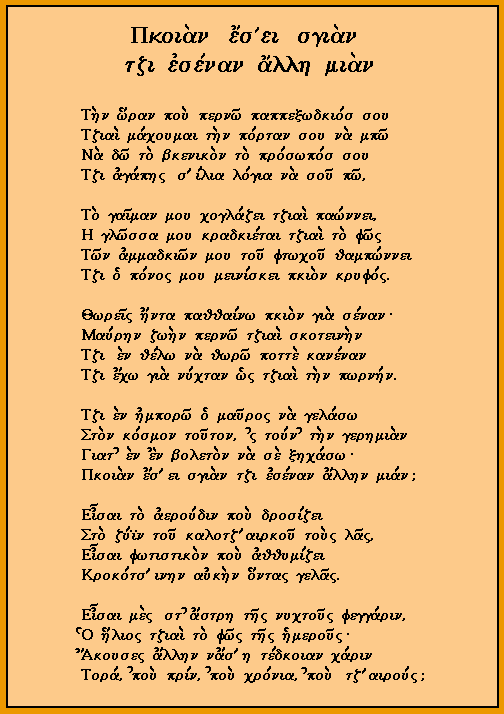 Πκοιὰν ἔσ̓ει σγιὰν
τζι ἐσέναν ἄλλη μιὰν
Τὴν ὥραν ποὺ περνῶ παππεξωδκιός σου
Τζιαὶ μάχουμαι τὴν πόρταν σου νὰ μπῶ
Νὰ δῶ τὸ βκενικὸν τὸ πρόσωπός σου
Τζι ἀγάπης σ̓ίλια λόγια νὰ σοῦ πῶ,
Τὸ γαῖμαν μου χογλάζει τζιαὶ παώννει,
Η γλῶσσα μου κραδκιέται τζιαὶ τὸ φῶς
Τῶν ἀμμαδκιῶν μου τοῦ φτωχοῦ θαμπώννει
Τζι ὁ πόνος μου μεινίσκει πκιὸν κρυφός.
Θωρεῖς ἥντα παθθαίνω πκιὸν γιὰ σέναν·
Μαύρην ζωὴν περνῶ τζιαὶ σκοτεινὴν
Τζι ὲν θέλω νὰ θωρῶ ποττὲ κανέναν
Τζι ἔχω γιὰ νύχταν ὡς τζιαὶ τὴν πωρνήν.
Τζι ὲν ἠμπορῶ ὁ μαῦρος νὰ γελάσω
Στὸν κόσμον τοῦτον, ᾿ς τούν᾿ τὴν γερημιὰν
Γιατ᾿ ὲν ἒν βολετὸν νὰ σὲ ξηχάσω·
Πκοιὰν ἔσ̓ει σγιὰν τζι ἐσέναν ἄλλην μιάν;
Εἶσαι τὸ ἀερούδιν ποὺ δροσίζει
Στὸ ζύϊν τοῦ καλοτζ̓αιρκοῦ τοὺς λᾶς,
Εἶσαι φωτιστικὸν ποὺ ἀθθυμίζει
Κροκότσ̓ινην αὐκὴν ὅντας γελᾶς.
Εἶσαι μὲς στ᾿ ἄστρη τῆς νυχτοῦς φεγγάριν,
Ὁ ἥλιος τζιαὶ τὸ φῶς τῆς ἡμεροῦς·
Ἄκουσες ἄλλην νᾶσ̓η τέδκοιαν χάριν
Τορά, ᾿ποὺ πρίν, ᾿ποὺ χρόνια, ᾿ποὺ τζ̓αιρούς;